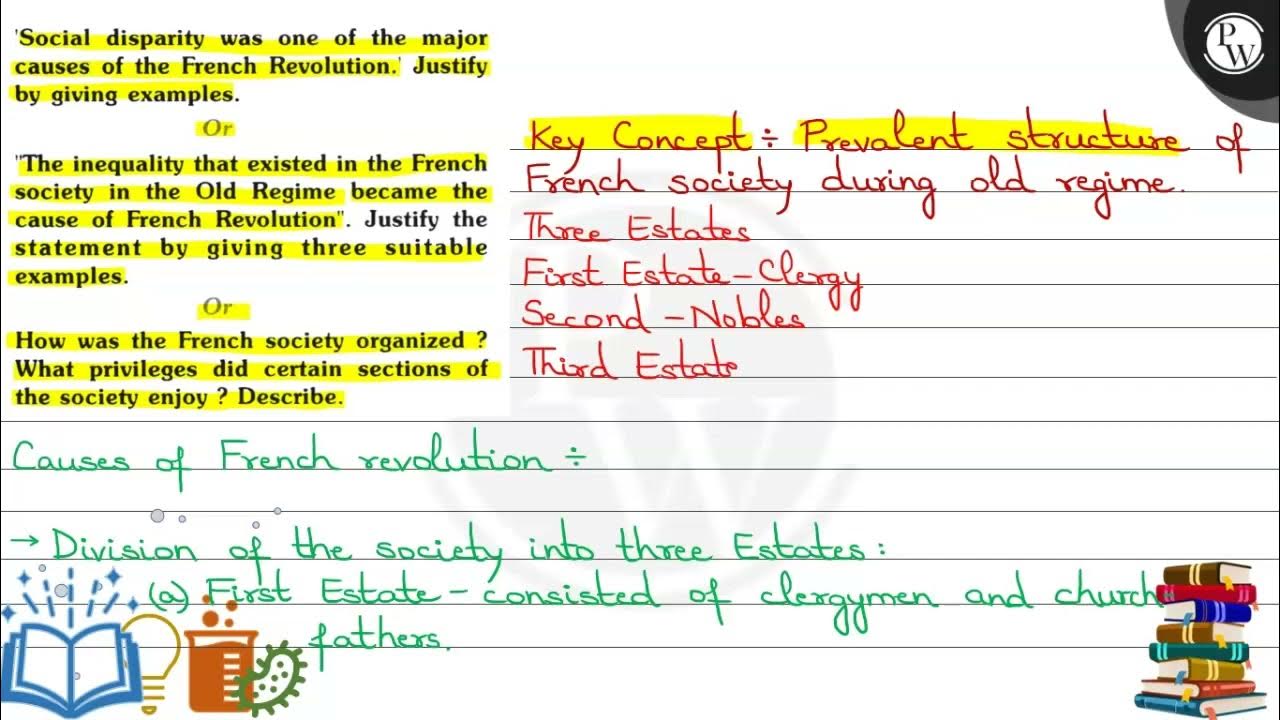 'Social disparity was one of the major
causes of the French Revolution.' Justify
by giving examples.
Or
"The inequality that existed in the French
society in the Old Regime became the
cause of French Revolution". Justify the
statement by giving three suitable
examples.
Or
How was the French society organized ?
What privileges did certain sections of
the society enjoy ? Describe.
PW
Key Concept ÷ Prevalent structure of
French society during old regime.
Three Estates
First Estate - Clergy
Second - Nobles
Third Estate
Causes of French revolution ÷
→ Division of the society into three Estates :
(a) First Estate - consisted of clergymen and church
fathers.